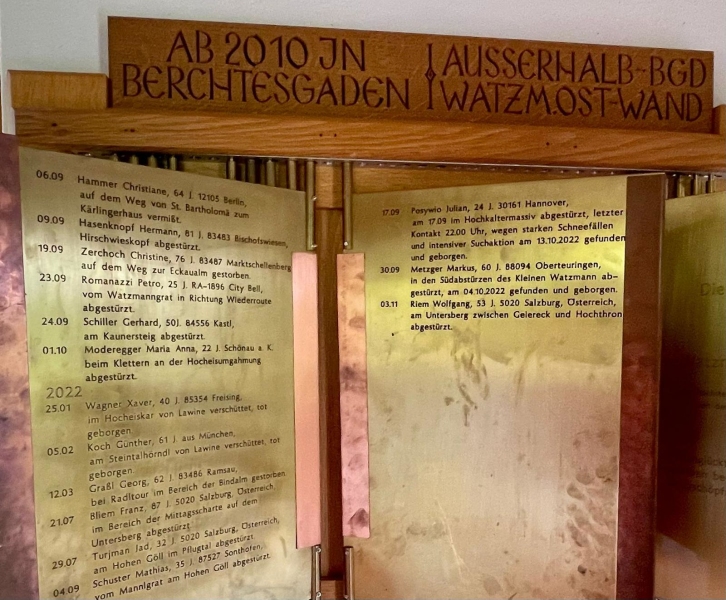 AB 2010 IN
BERCHTESGADEN
AUSSERHALB-BGD
WATZM.OST-WAND
06.09 Hammer Christiane, 64 J. 12105 Berlin,
auf dem Weg von St. Bartholomä zum
Kärlingerhaus vermißt.
09.09 Hasenknopf Hermann, 81 J. 83483 Bischofswiesen,
Hirschwieskopf abgestürzt.
19.09 Zerchoch Christine, 76 J. 83487 Marktschellenberg
auf dem Weg zur Eckaualm gestorben.
23.09 Romanazzi Petro, 25 J. RA-1896 City Bell,
vom Watzmanngrat in Richtung Wiederroute
abgestürzt.
24.09 Schiller Gerhard, 50J. 84556 Kastl,
am Kaunersteig abgestürzt.
01.10 Moderegger Maria Anna, 22 J. Schönau a. K.
beim Klettern an der Hocheisumgahmung
abgestürzt.
2022
25.01 Wagner Xaver, 40 J. 85354 Freising,
im Hocheiskar von Lawine verschüttet, tot
geborgen.
05.02 Koch Günther, 61 J. aus München,
am Steintalhörndl von Lawine verschüttet, tot
geborgen.
12.03 Graßl Georg, 62 J. 83486 Ramsau,
bei Radltour im Bereich der Bindalm gestorben.
21.07 Bliem Franz, 87 J. 5020 Salzburg, Österreich,
im Bereich der Mittagsscharte auf dem
Untersberg abgestürzt.
29.07 Turjman Jad, 32 J. 5020 Salzburg, Österreich,
am Hohen Göll im Pflugtal abgestürzt.
04.09 Schuster Mathias, 35 J. 87527 Sonthofen,
vom Mannlgrat am Hohen Göll abgestürzt.
17.09 Posywio Julian, 24 J. 30161 Hannover,
am 17.09 im Hochkaltermassiv abgestürzt, letzter
Kontakt 22.00 Uhr, wegen starken Schneefällen
und intensiver Suchaktion am 13.10.2022 gefunden
und geborgen.
30.09 Metzger Markus, 60 J. 88094 Oberteuringen,
in den Südabstürzen des Kleinen Watzmann ab-
gestürzt, am 04.10.2022 gefunden und geborgen.
03.11 Riem Wolfgang, 53 J. 5020 Salzburg, Österreich,
am Untersberg zwischen Geiereck und Hochthron
abgestürzt.
Die